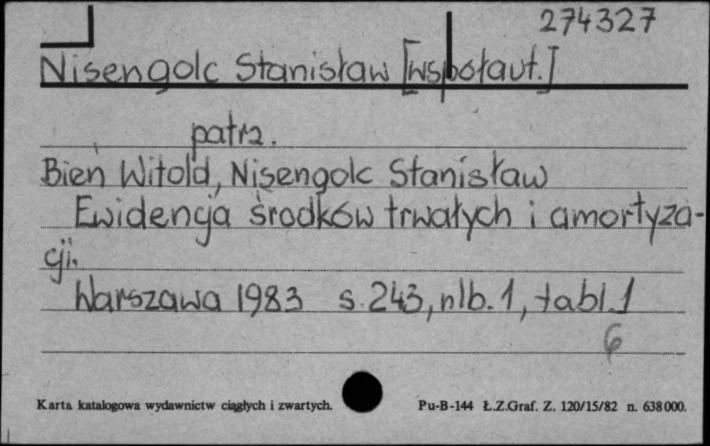 274327
Nisengolc Stanisław [współaut.]
patrz.
Bień Witold, Nisengolc Stanisław
Ewidencja środków trwałych i amortyza-
cji.
Warszawa 1983 s. 243, nlb. 1, tabl. 1
6
Karta katalogowa wydawnictw ciągłych i zwartych. Pu-B-144 Ł.Z.Graf. Z. 120/15/82 n. 638000.